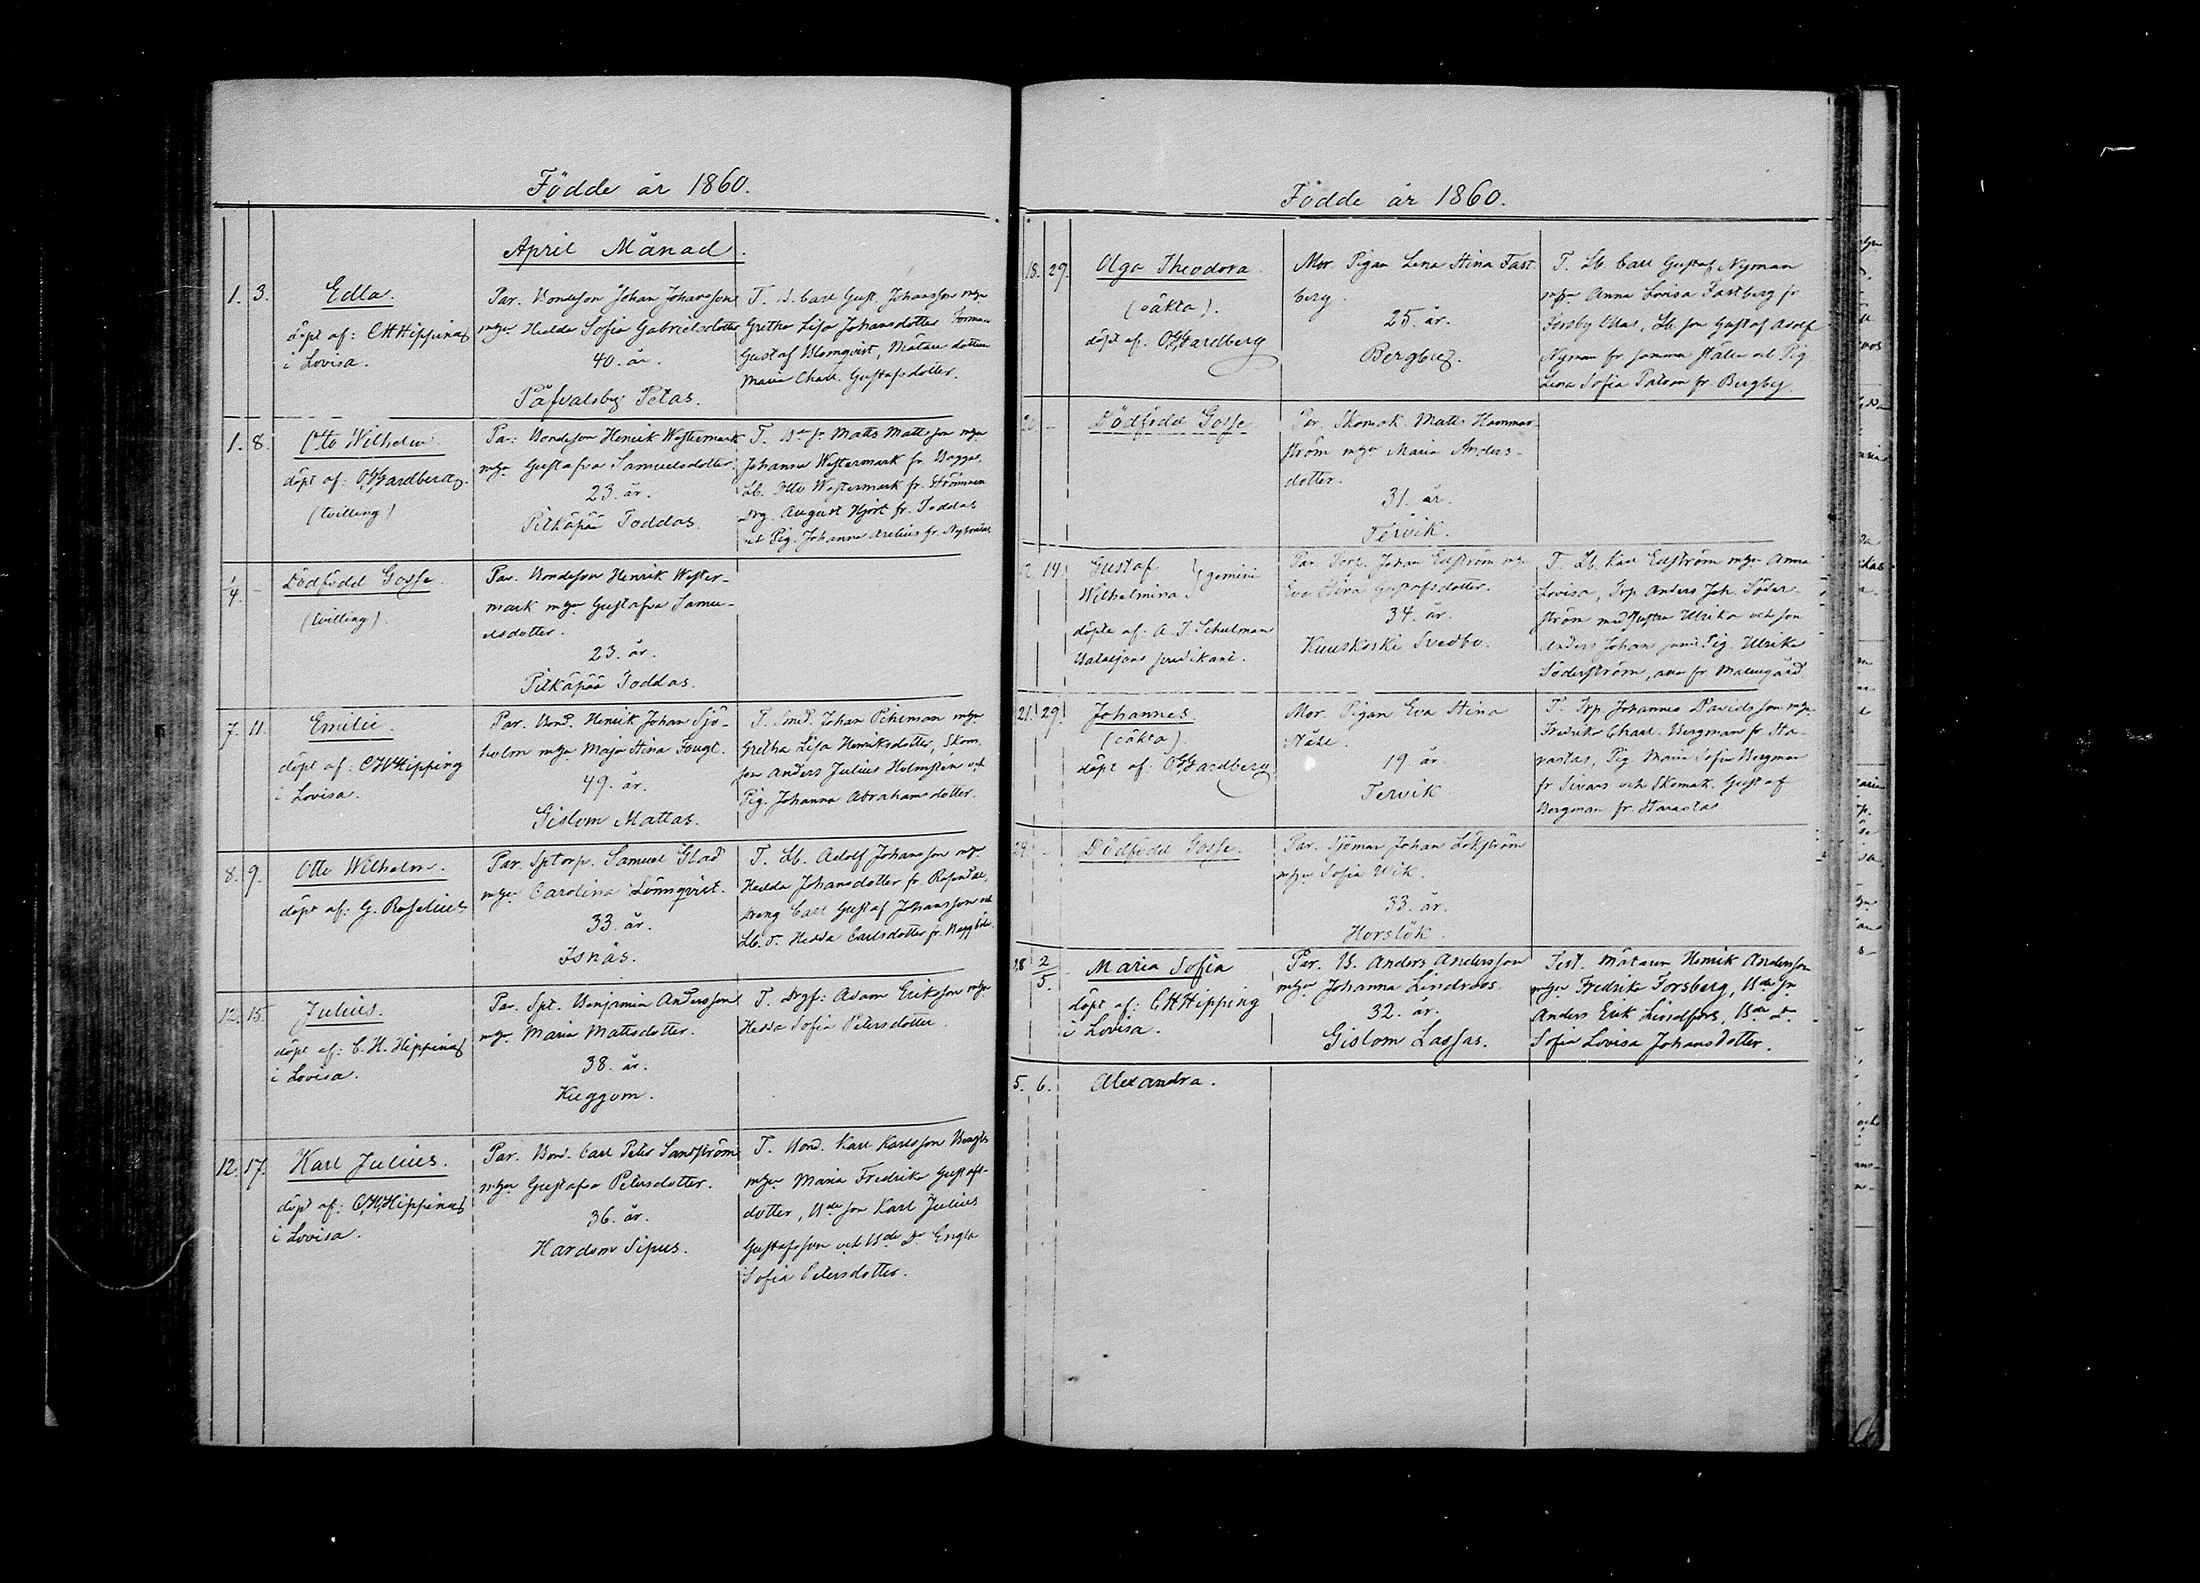 Födde år 1860.
April Månad.
1. 3. Edla.
döpt af: CHHipping
i Lovisa.
Par. Bondeson Johan Johansson
mgn Hedda Sofia Gabrielsdotter
40. år.
Påfvalsby Petas.
T. B. Carl Gust. Johansson mgn
Gretha Lisa Johansdotter
Gustaf Blomqvist, Mätare dotter
Maria Charl. Gustafsdotter.
1. 8. Otto Wilhelm
döpt af: OHGardberg.
(tvilling)
Par: Bondeson Henrik Westermark
mgn Gustafva Samuelsdotter.
23. år.
Pitkäpää Toddas.
T. Bde sn Matts Mattsson mgn
Johanna Westermark fr. Bagga.
Lb. Otto Westermark fr. Strömmen
Drg. August Hjort fr. Toddas
och Pig. Johanna fr.
1/4. – Dödfödd Gosse.
(tvilling).
Par. Bondeson Henrik Wester-
mark mgn Gustafva Samu-
elsdotter.
23. år.
Pitkäpää Toddas.
7. 11. Emilie.
döpt af: CHHipping
i Lovisa.
Par. Bond. Henrik Johan Sjö-
holm mgn Maja Stina Fougt.
49. år.
Gislom Mattas.
T. Smed. Johan Pihlman mgn
Gretha Lisa Henriksdotter, Skom.
son Anders Julius Holmsten och
Pig. Johanna Abrahamsdotter.
8. 9. Otto Wilhelm.
döpt af: G. Roselius
Par. Sptorp. Samuel Glad
mgn Carolina Lönnqvist.
33. år.
Isnäs.
T. Lb. Adolf Johansson mgn
Hedda Johansdotter fr. Rosendal,
Dreng Carl Gustaf Johansson och
Lb. d. Hedda Carlsdotter fr.
12. 15. Julius.
döpt af: C. H. Hipping
i Lovisa.
Par. Spt. Benjamin Andersson
mgn Maria Mattsdotter.
38. år.
Kuggom.
T. Drgf: Adam Eriksson mgn
Hedda Sofia Petersdotter.
12. 17. Karl Julius.
döpt af: CHHipping
i Lovisa.
Par. Bond. Carl Peter Sandström
mgn Gustafva Petersdotter.
36. år.
Hardom Sipus.
T. Bond. Karl Karlsson Bengts
mgn Maria Fredrika Gustafs-
dotter, Bde son Karl Julius
Gustafsson och Bde Dr Engla
Sofia Petersdotter.
Födde år 1860.
18. 29. Olga Theodora.
(oäkta).
döpt af. OHGardberg
Mor. Pigan Lena Stina Fast-
berg.
25. år.
Bergby.
T. Lb. Carl Gustaf Nyman
mgn Anna Lovisa Fastberg fr
Forsby Ollas, Lb. son Gustaf Adolf
Nyman fr samma ställe och Pig.
Lena Sofia fr. Bergby.
20 – Dödfödd Gosse
Par. Skomak. Matts Hammar-
ström mgn Maria Anders-
dotter.
31. år.
Tervik.
12. 14. Gustaf
Wilhelmina } gemini
döpte af: A. J. Schulman
Bataljons predikant.
Par. Torp. Johan Edström mgn
Eva Stina Gustafsdotter.
34. år.
Kuuskoski Svedbo.
T. Lb. Karl Edström mgn Anna
Lovisa, Trp Anders Joh. Söder-
ström med hustru Ulrika och son
Anders Johan, samt Pig. Ulrika
Söderström, alla fr Malmgård
21. 29. Johannes
(oäkta)
döpt af: OHGardberg
Mor. Pigan Eva Stina
Ståhl.
19. år.
Tervik
T. Trp Johannes Davidsson mgn
Fredrika Charl. Bergman fr Ha-
rastas, Pig Maria Sofia Bergman
fr Sivars och Skomak. Gustaf
Bergman fr. Harastas
24. – Dödfödd Gosse.
Par. Sjöman Johan Lökström
mgn Sofia Wik.
33. år.
Horslök.
28 2/5. Maria Sofia
döpt af: CHHipping
i Lovisa.
Par. B. Anders Andersson
mgn Johanna Lindroos.
32. år.
Gislom Lassas.
Test. Mätaren Henrik Andersson
mgn Fredrika Forsberg, Bde sn
Anders Erik Lindfors, Bde dr
Sofia Lovisa Johansdotter.
5. 6. Alexandra.